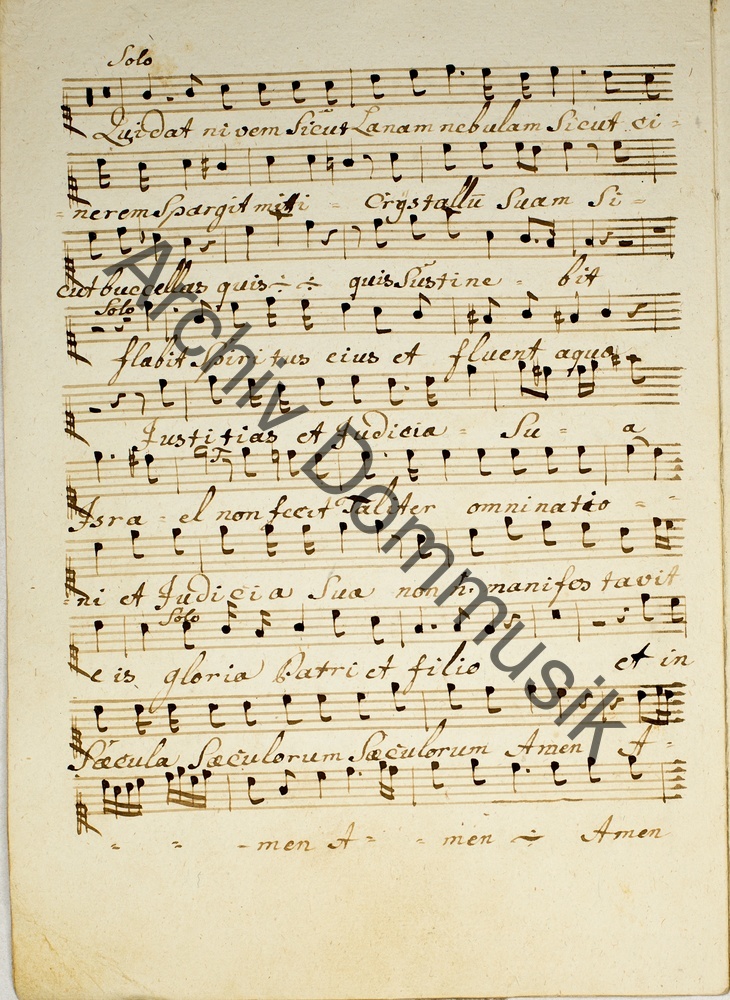 Solo
Qui dat nivem Sicut Lanam nebulam Sicut ci -
- nerem Spargit mitti - Crÿstallū Suam Si -
cut buccellas quis ÷ ÷ quis Sustine - bit
Solo
flabit Spiritus eius et fluent aquæ
Justitias et Judicia - Su - a
Isra - el non fecit Taliter omninatio - -
- ni et Judicia Sua non manifestavit
Solo
eis gloria Patri et filio et in
Sæcula Sæculorum Sæculorum Amen A -
- - - men A - - men ÷ Amen
Archiv Dommusik